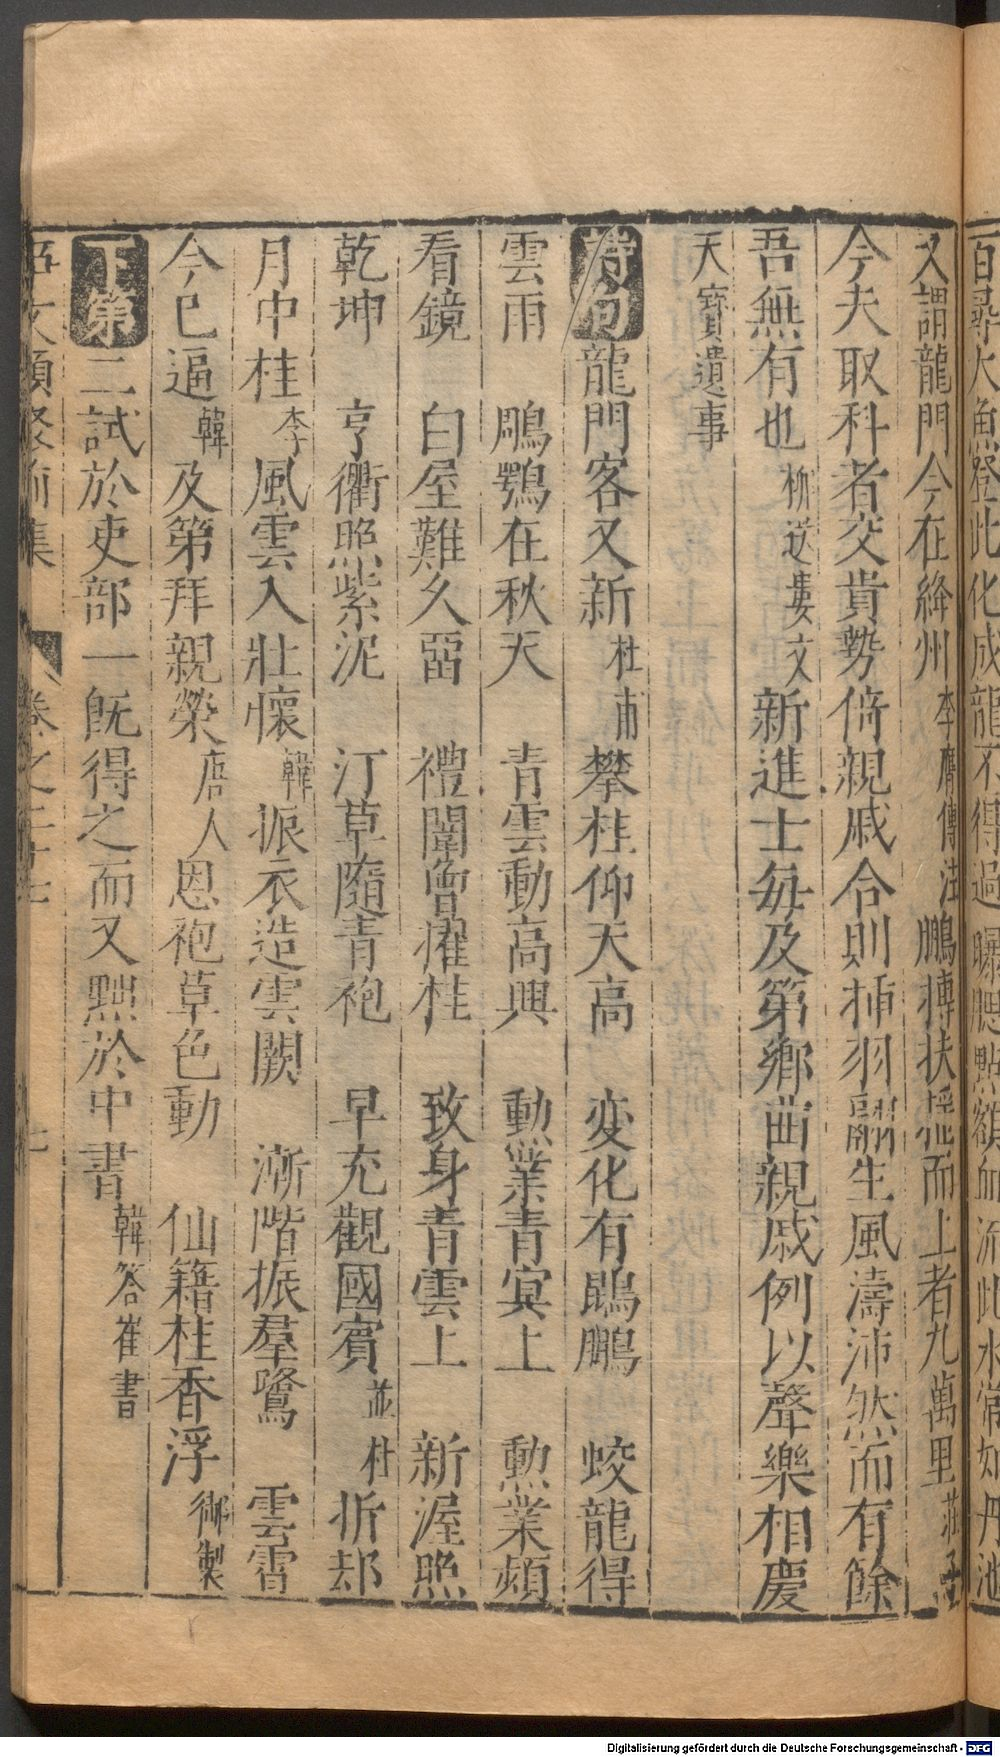 百尋大魚登此化成龍不得過曝腮點額血流此水常如丹池
又謂龍門今在絳州李膺傳注鵬摶扶搖而上者九萬里莊子
今夫取科者交貴勢倚親戚合則揷羽翮生風濤沛然而有餘
吾無有也柳送婁文新進士每及第鄉曲親戚例以聲樂相慶
天寶遺事
詩句龍門客又新杜甫攀桂仰天高 変化有鵾鵬 蛟龍得
雲雨 鵰鶚在秋天 青雲動高興 勲業青冥上 勲業頻
看鏡 白屋難久畱 禮闈曾擢桂 致身青雲上 新渥照
乾坤 亨衢照紫泥 汀草隨青袍 早充觀國賓並杜折却
月中桂李風雲入壯懷韓振衣造雲闕 漸階振羣鷺 雲霄
今已逼韓及第拜親榮唐人恩袍草色動 仙籍桂香浮御製
下第二試於吏部一旣得之而又黜於中書韓答崔書
事文類聚前集 卷之二十七 七
Digitalisierung gefördert durch die Deutsche Forschungsgemeinschaft - DFG